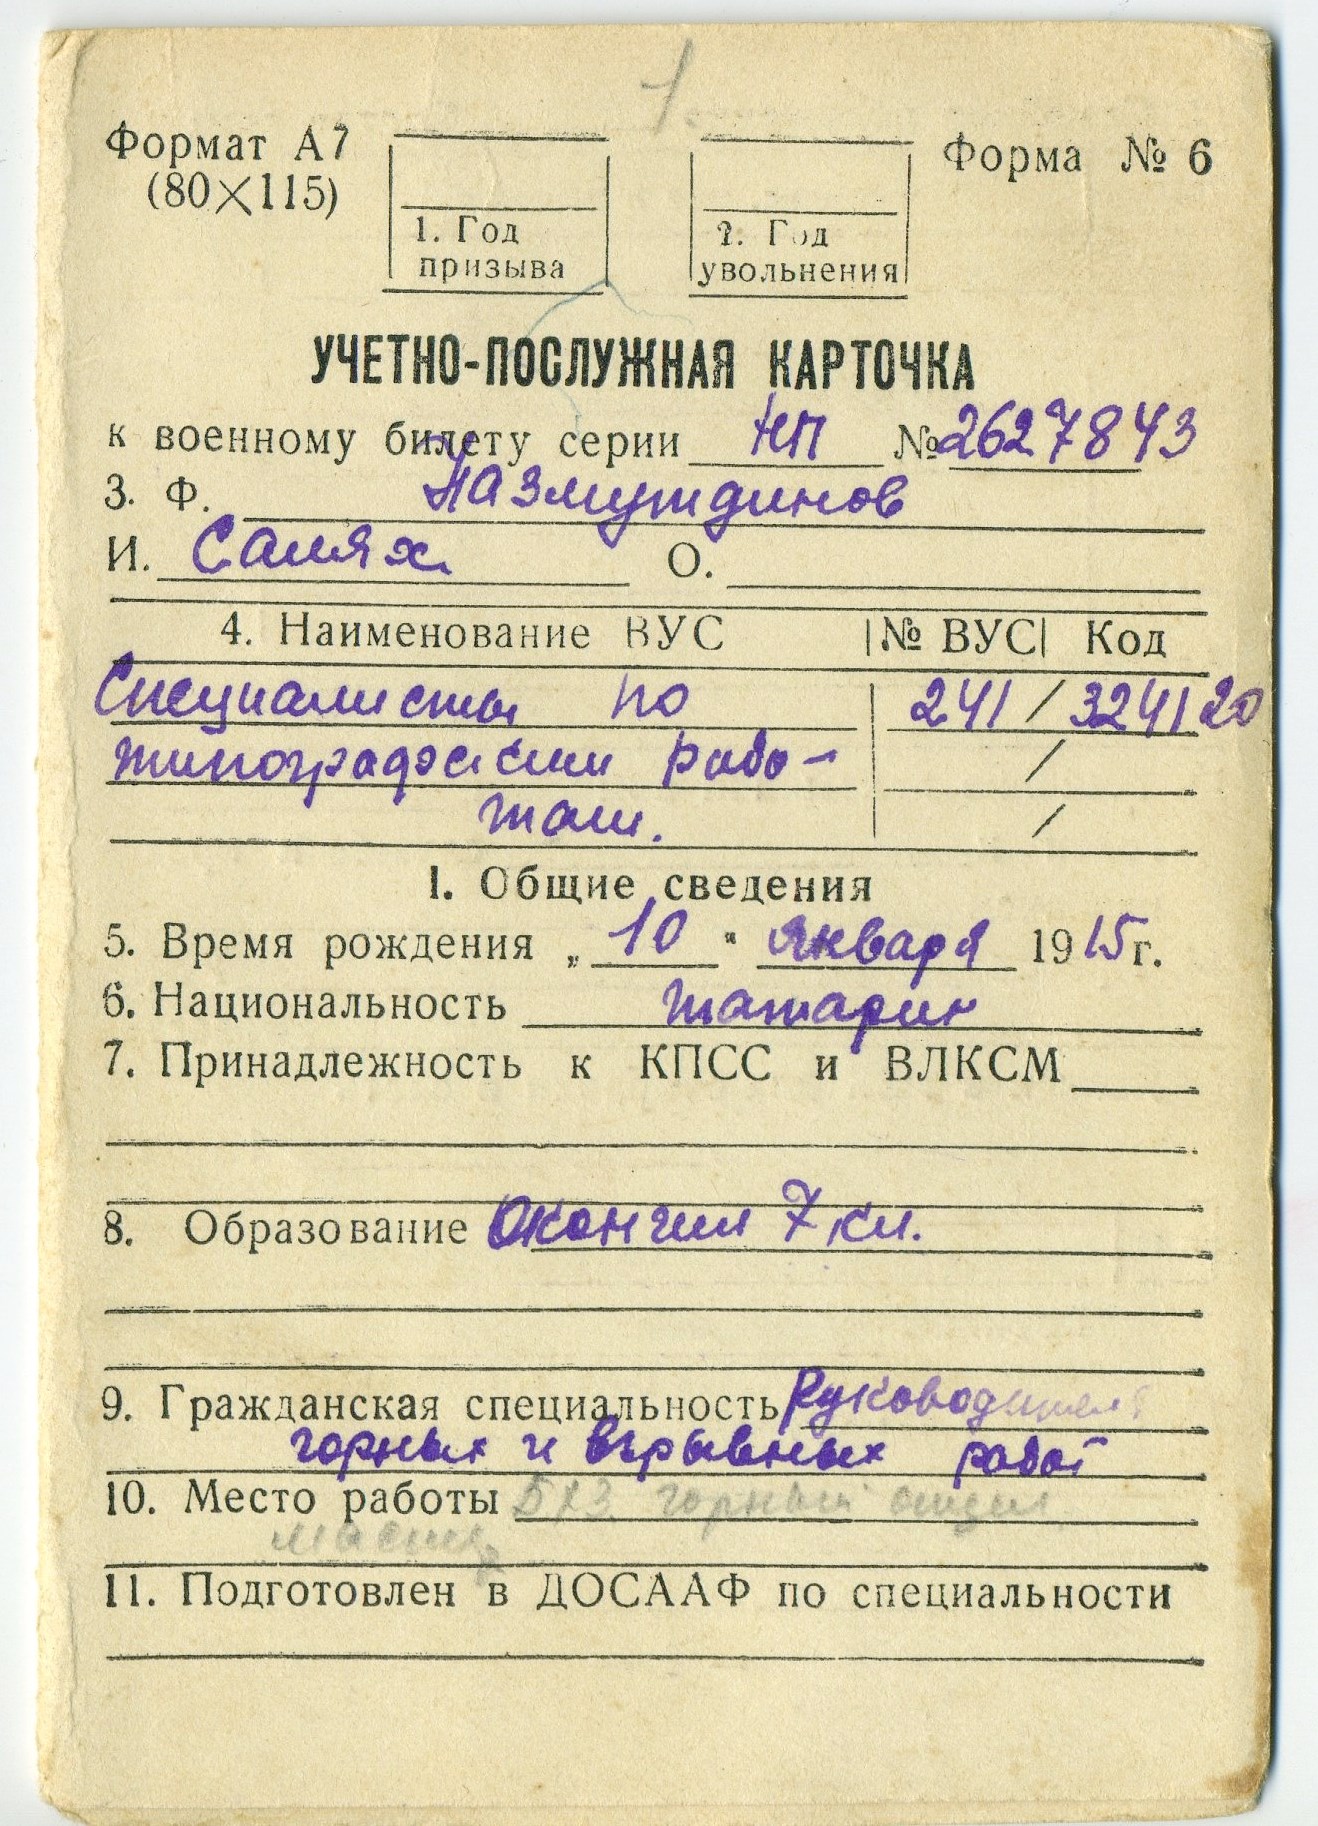 1
Формат А7
(80×115)
1. Год
призыва
2. Год
увольнения
Форма № 6
УЧЕТНО-ПОСЛУЖНАЯ КАРТОЧКА
к военному билету серии НП № 2627843
3. Ф. Назмутдинов
И. Салях О.
4. Наименование ВУС № ВУС Код
Специалисты по 241 / 3241 20
типографским рабо- /
там. /
I. Общие сведения
5. Время рождения „ 10 “ января 1915 г.
6. Национальность татарин
7. Принадлежность к КПСС и ВЛКСМ
8. Образование Окончил 7 кл.
9. Гражданская специальность Руководитель
горных и взрывных работ
10. Место работы горный
11. Подготовлен в ДОСААФ по специальности